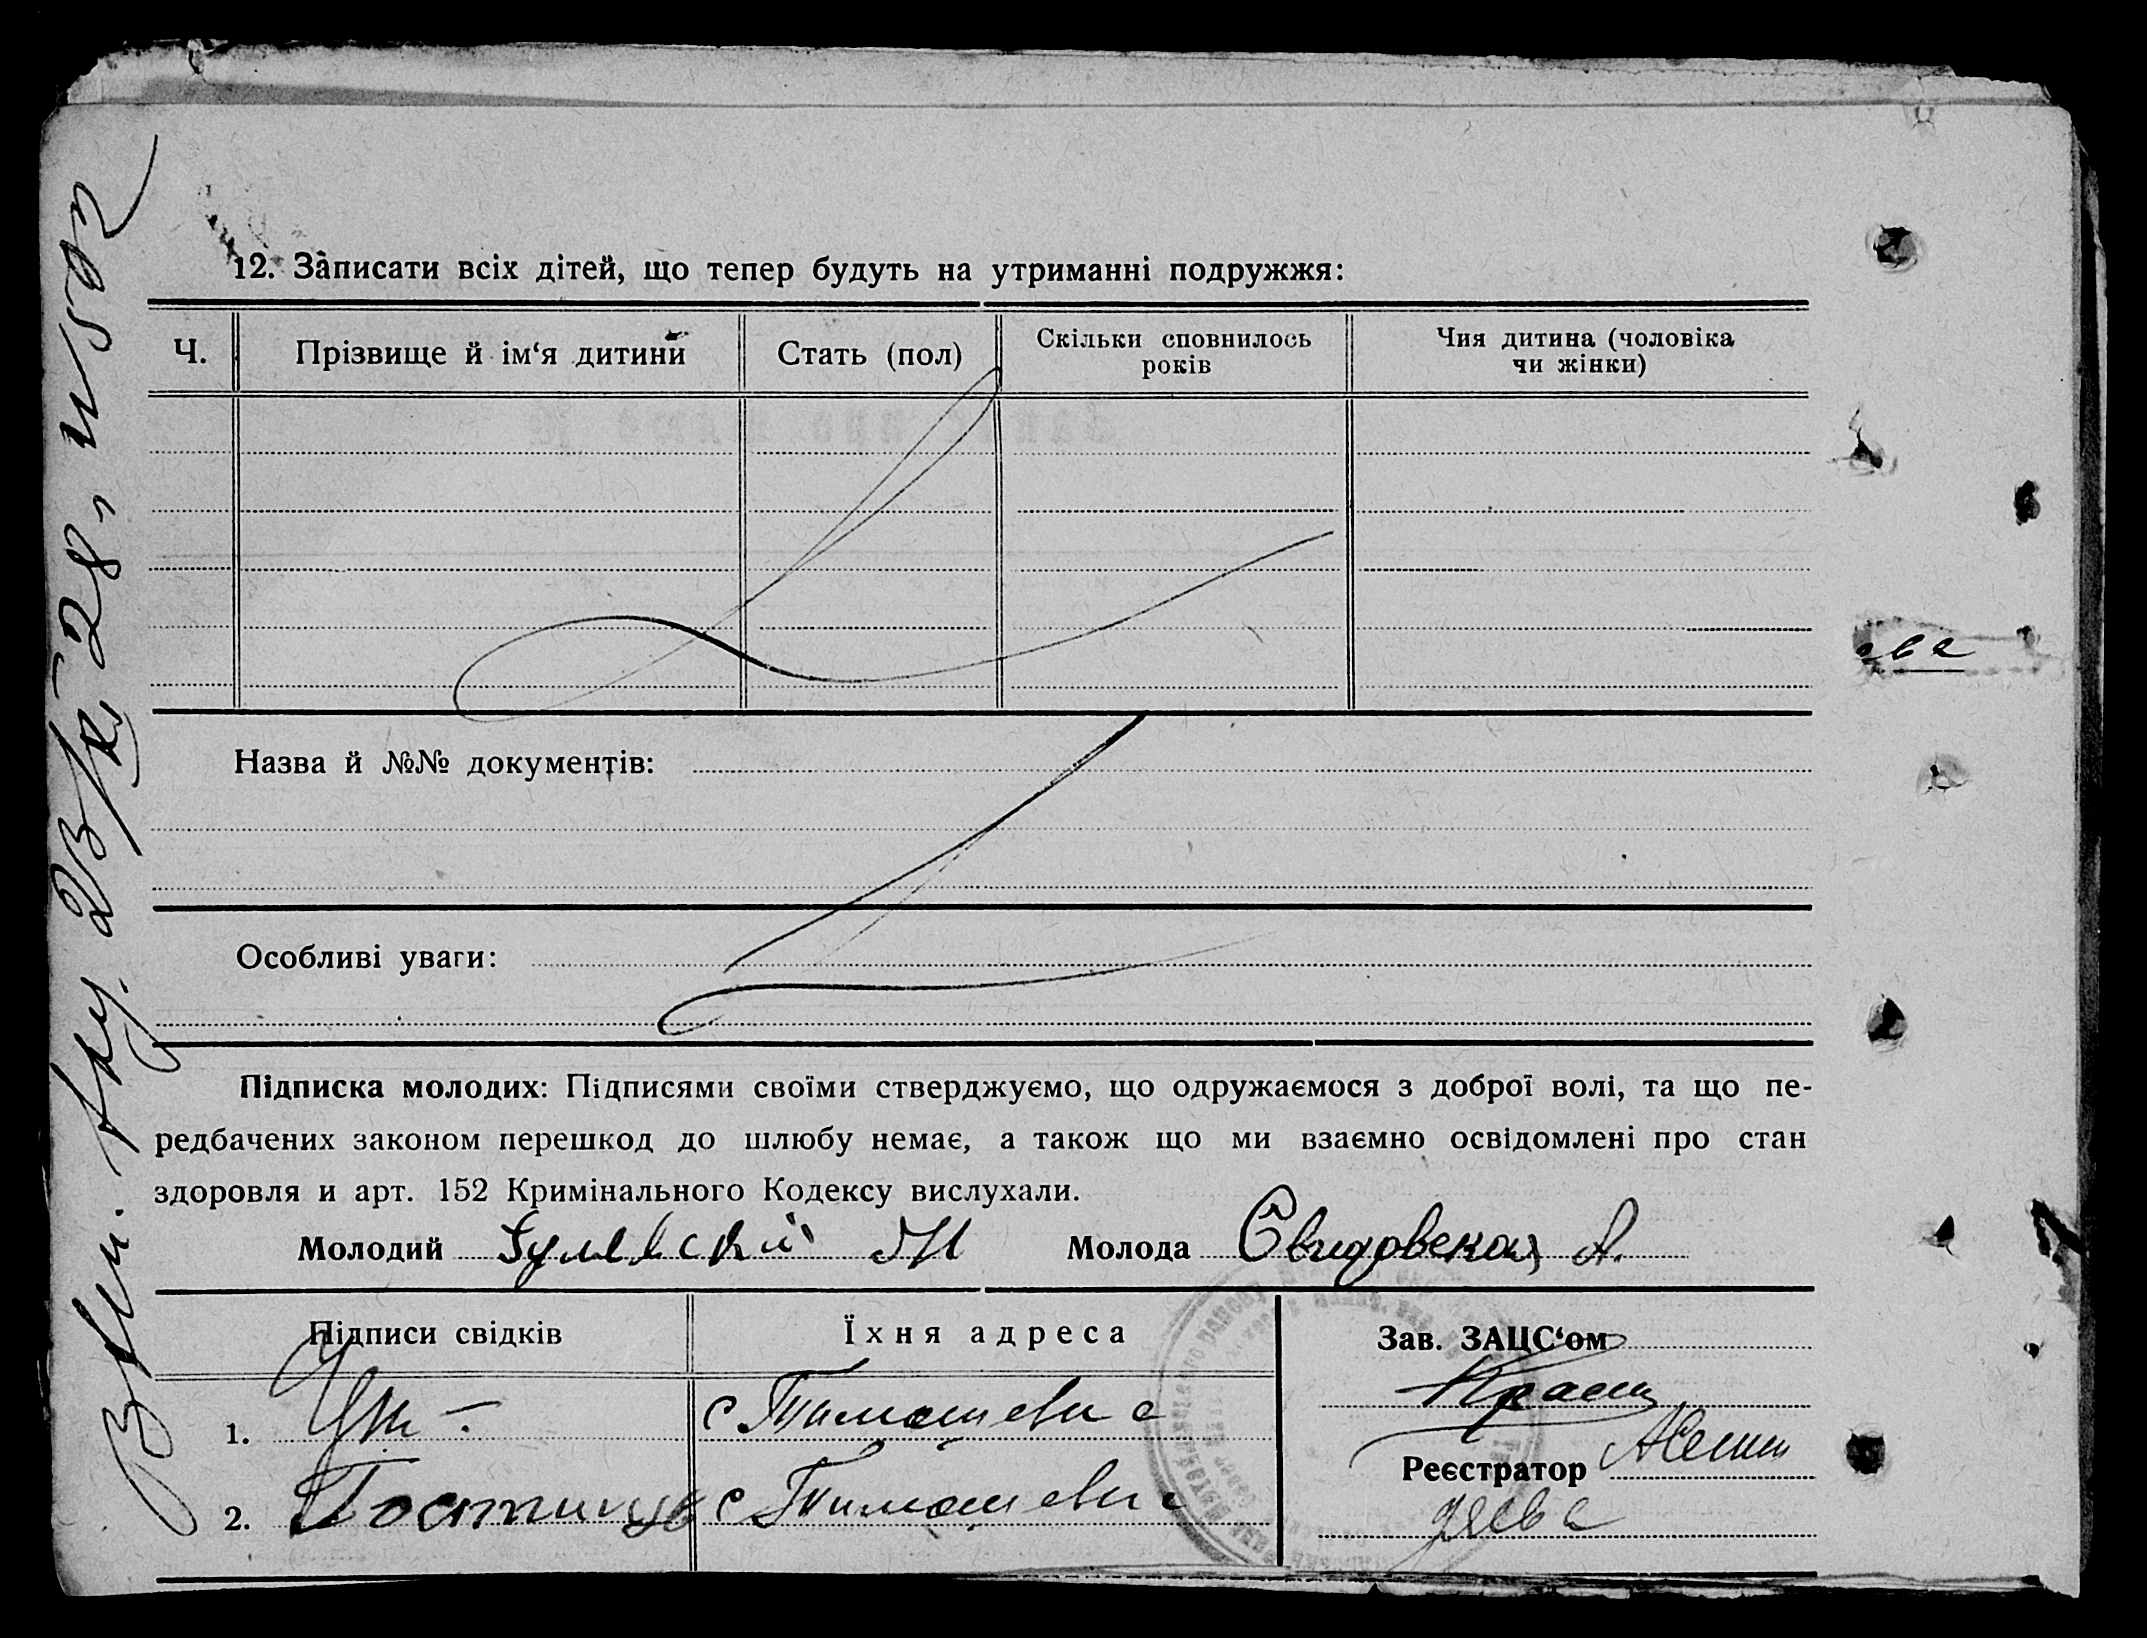 12. Записати всіх дітей, що тепер будуть на утриманні подружжя:
Ч.
Прізвище й ім‘я дитини
Стать (пол)
Скільки сповнилось
років
Чия дитина (чоловіка
чи жінки)
Назва й №№ документів:
Особливі уваги:
Підписка молодих: Підписями своїми стверджуємо, що одружаємося з доброї волі, та що пе-
редбачених законом перешкод до шлюбу немає, а також що ми взаємно освідомлені про стан
здоровля и арт. 152 Кримінального Кодексу вислухали.
Молодий Гулевский Молода Свидовская А.
Підписи свідків
Їхня адреса
Зав. ЗАЦС‘ом
1. с Тимошевка
Реєстратор
2. с Тимошевка